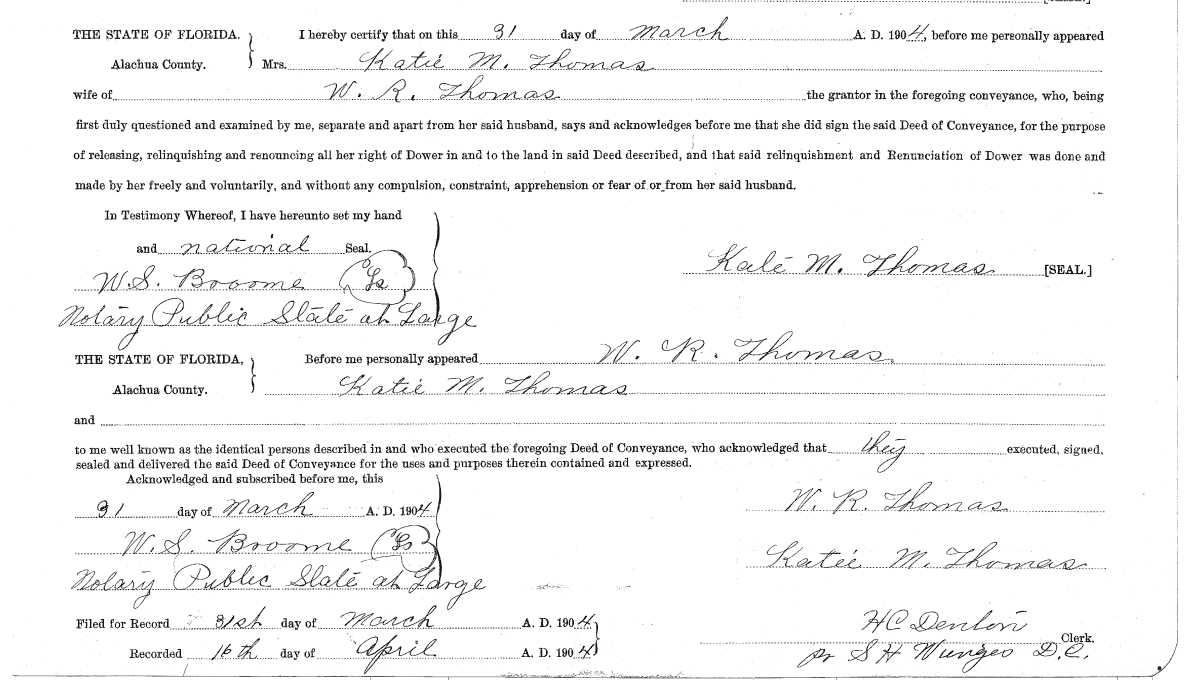 THE STATE OF FLORIDA. I hereby certify that on this 31 day of March A. D. 1904, before me personally appeared
Alachua County. Mrs. Katie M. Thomas
wife of W. R. Thomas the grantor in the foregoing conveyance, who, being
first duly questioned and examined by me, separate and apart from her said husband, says and acknowledges before me that she did sign the said Deed of Conveyance, for the purpose
of releasing, relinquishing and renouncing all her right of Dower in and to the land in said Deed described, and that said relinquishment and Renunciation of Dower was done and
made by her freely and voluntarily, and without any compulsion, constraint, apprehension or fear of or from her said husband.
In Testimony Whereof, I have hereunto set my hand
and national Seal.
Kate M. Thomas [SEAL.]
W. S. Broome Ls
Notary Public State at Large
THE STATE OF FLORIDA, Before me personally appeared W. R. Thomas
Alachua County. Katie M. Thomas
and
to me well known as the identical persons described in and who executed the foregoing Deed of Conveyance, who acknowledged that they executed, signed,
sealed and delivered the said Deed of Conveyance for the uses and purposes therein contained and expressed.
Acknowledged and subscribed before me, this
31 day of March A. D. 1904
W. R. Thomas
W. S. Broome Ls
Katie M. Thomas
Notary Public State at Large
Filed for Record 31st day of March A. D. 1904
H C Denton Clerk.
Recorded 16th day of April A. D. 1904
pr S H D. C.